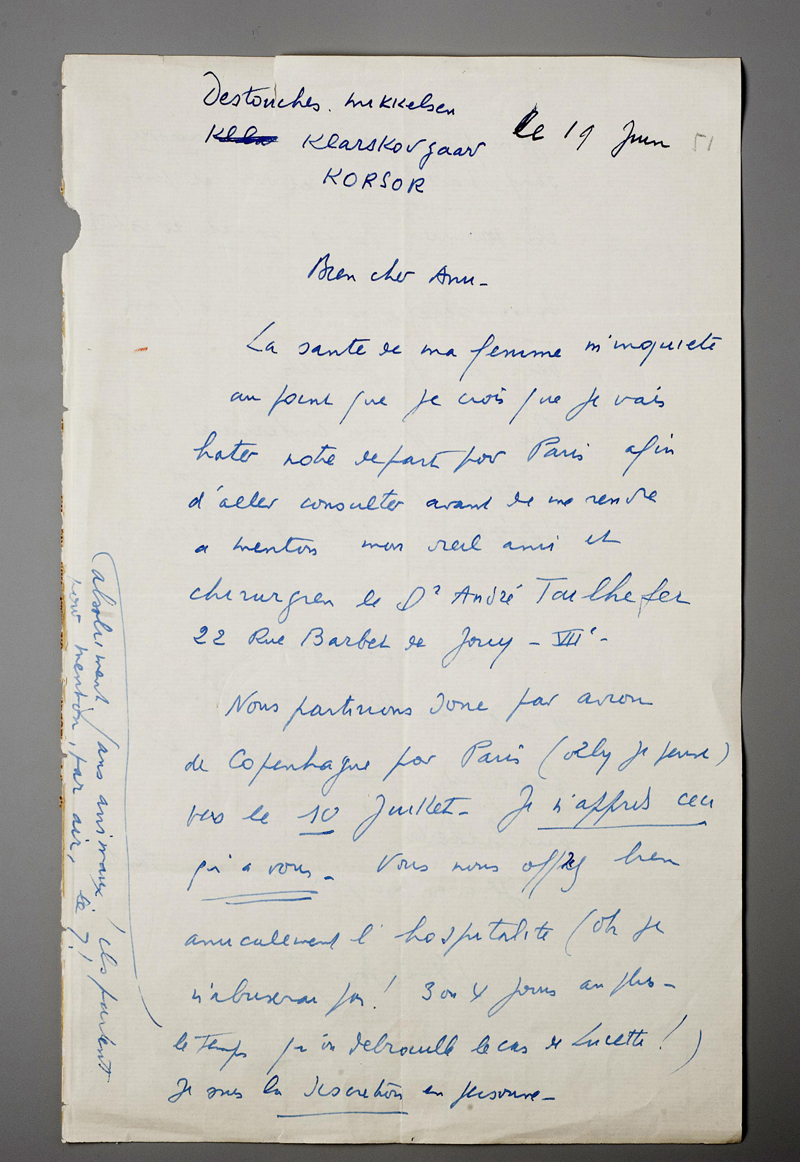 Destouches. Mikkelsen
Klarskovgaar le 19 Juin 51
KORSOR
Bien cher Ami -
La sante de ma femme m'inquiete
au point que je crois que je vais
hater notre depart por Paris afin
d'aller consulter avant de me rendre
a menton mon vieil ami et
chirurgien le Dr André Tailhefer
22 Rue Barbet de Jouy - VIIe -
Nous partirions donc par avion
de Copenhague por Paris (Orly je pense)
vers le 10 Juillet - Je n'apprends ceci
qu'a vous - Vous nous offrez bien
amicalement l'hospitalite (oh je
n'abuserai pas! 3 ou 4 jours au plus -
le temps qu'on debrouille le cas de Lucette!)
Je suis la discretion en personne -
(absolument sans animaux! ils partent
pour menton, par air, le 7!